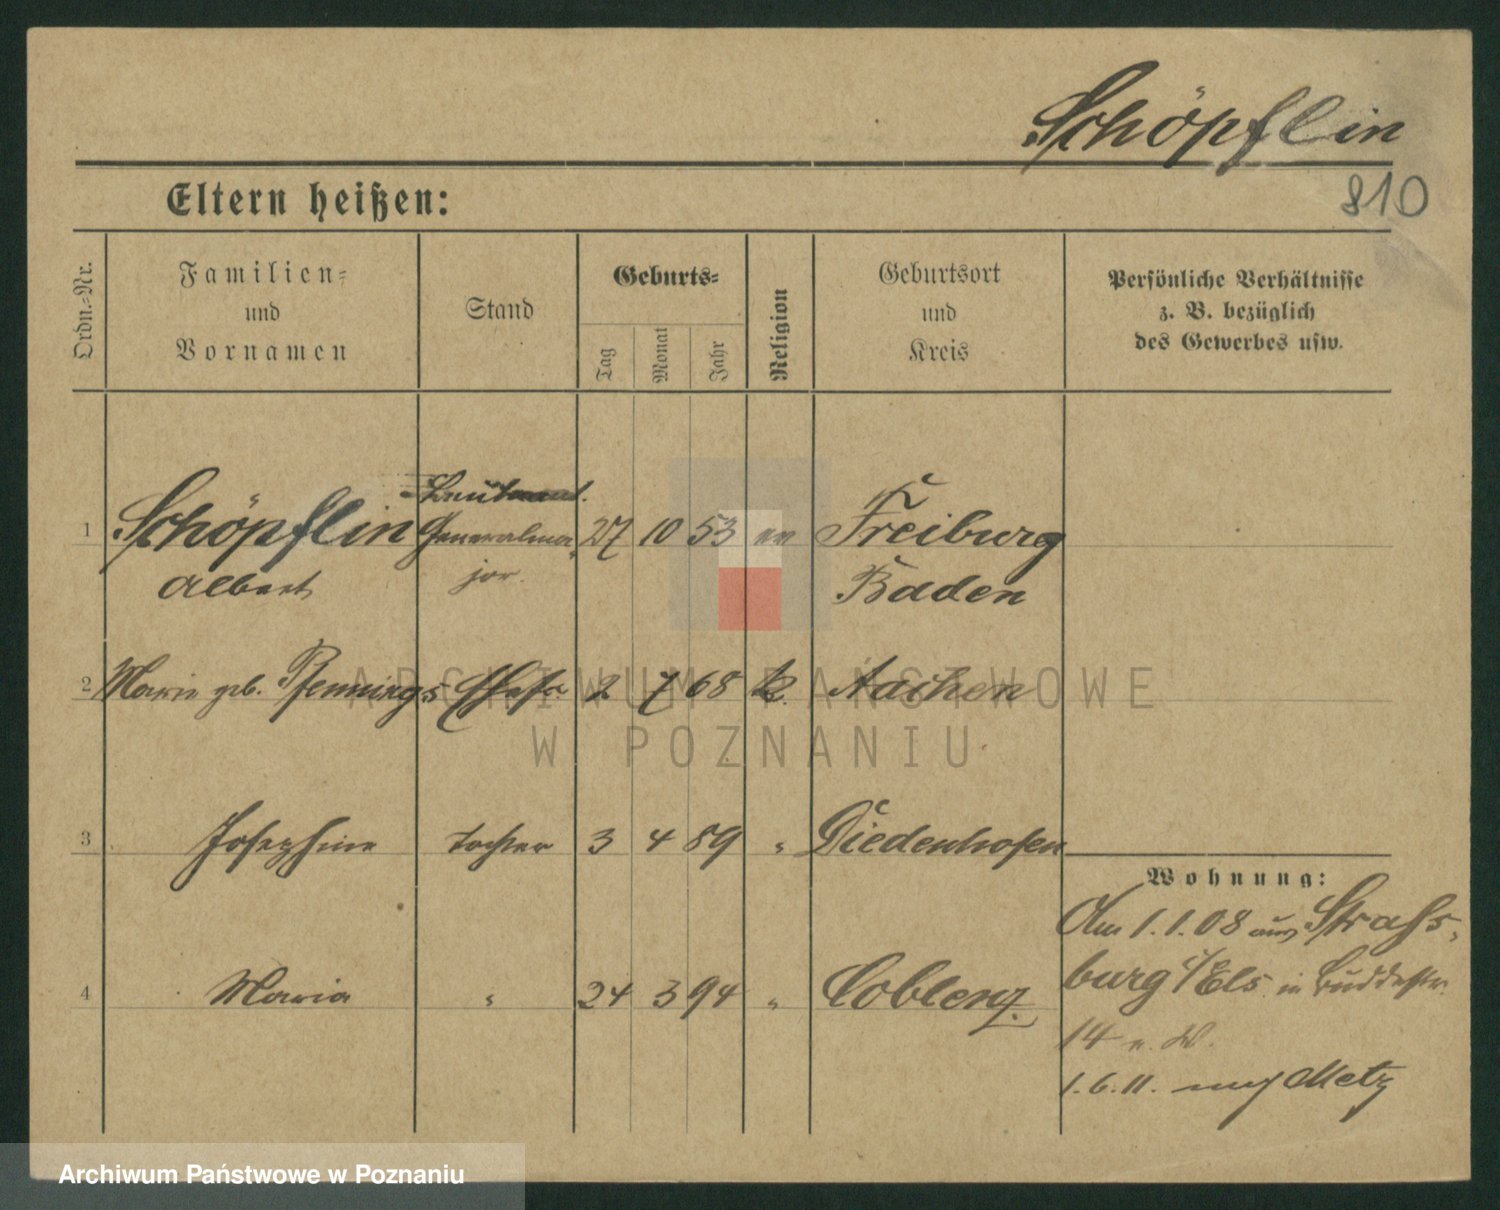 Schöpflin
810
Eltern heißen:
Ordn.-Nr.
Familien-
und
Vornamen
Stand
Geburts-
Tag
Monat
Jahr
Religion
Geburtsort
und
Kreis
Persönliche Verhältnisse
z. B. bezüglich
des Gewerbes usw.
Leutnant.
1 Schöpflin Generalma- 27 10 53 ev Freiburg
Albert jor. Baden
2 Marie geb. Pfennings Ehefr. 2 7 68 k. Aachen
3 Josephine Tochter 3 4 89 " Diedenhofen
Wohnung:
Am 1.1.08 aus Straß-
burg i/Els. in Buddestr.
4 Maria " 24 3 94 " Coblenz.
14 v. W.
1.6.11. nach Metz
ARCHIWUM PAŃSTWOWE
W POZNANIU
Archiwum Państwowe w Poznaniu